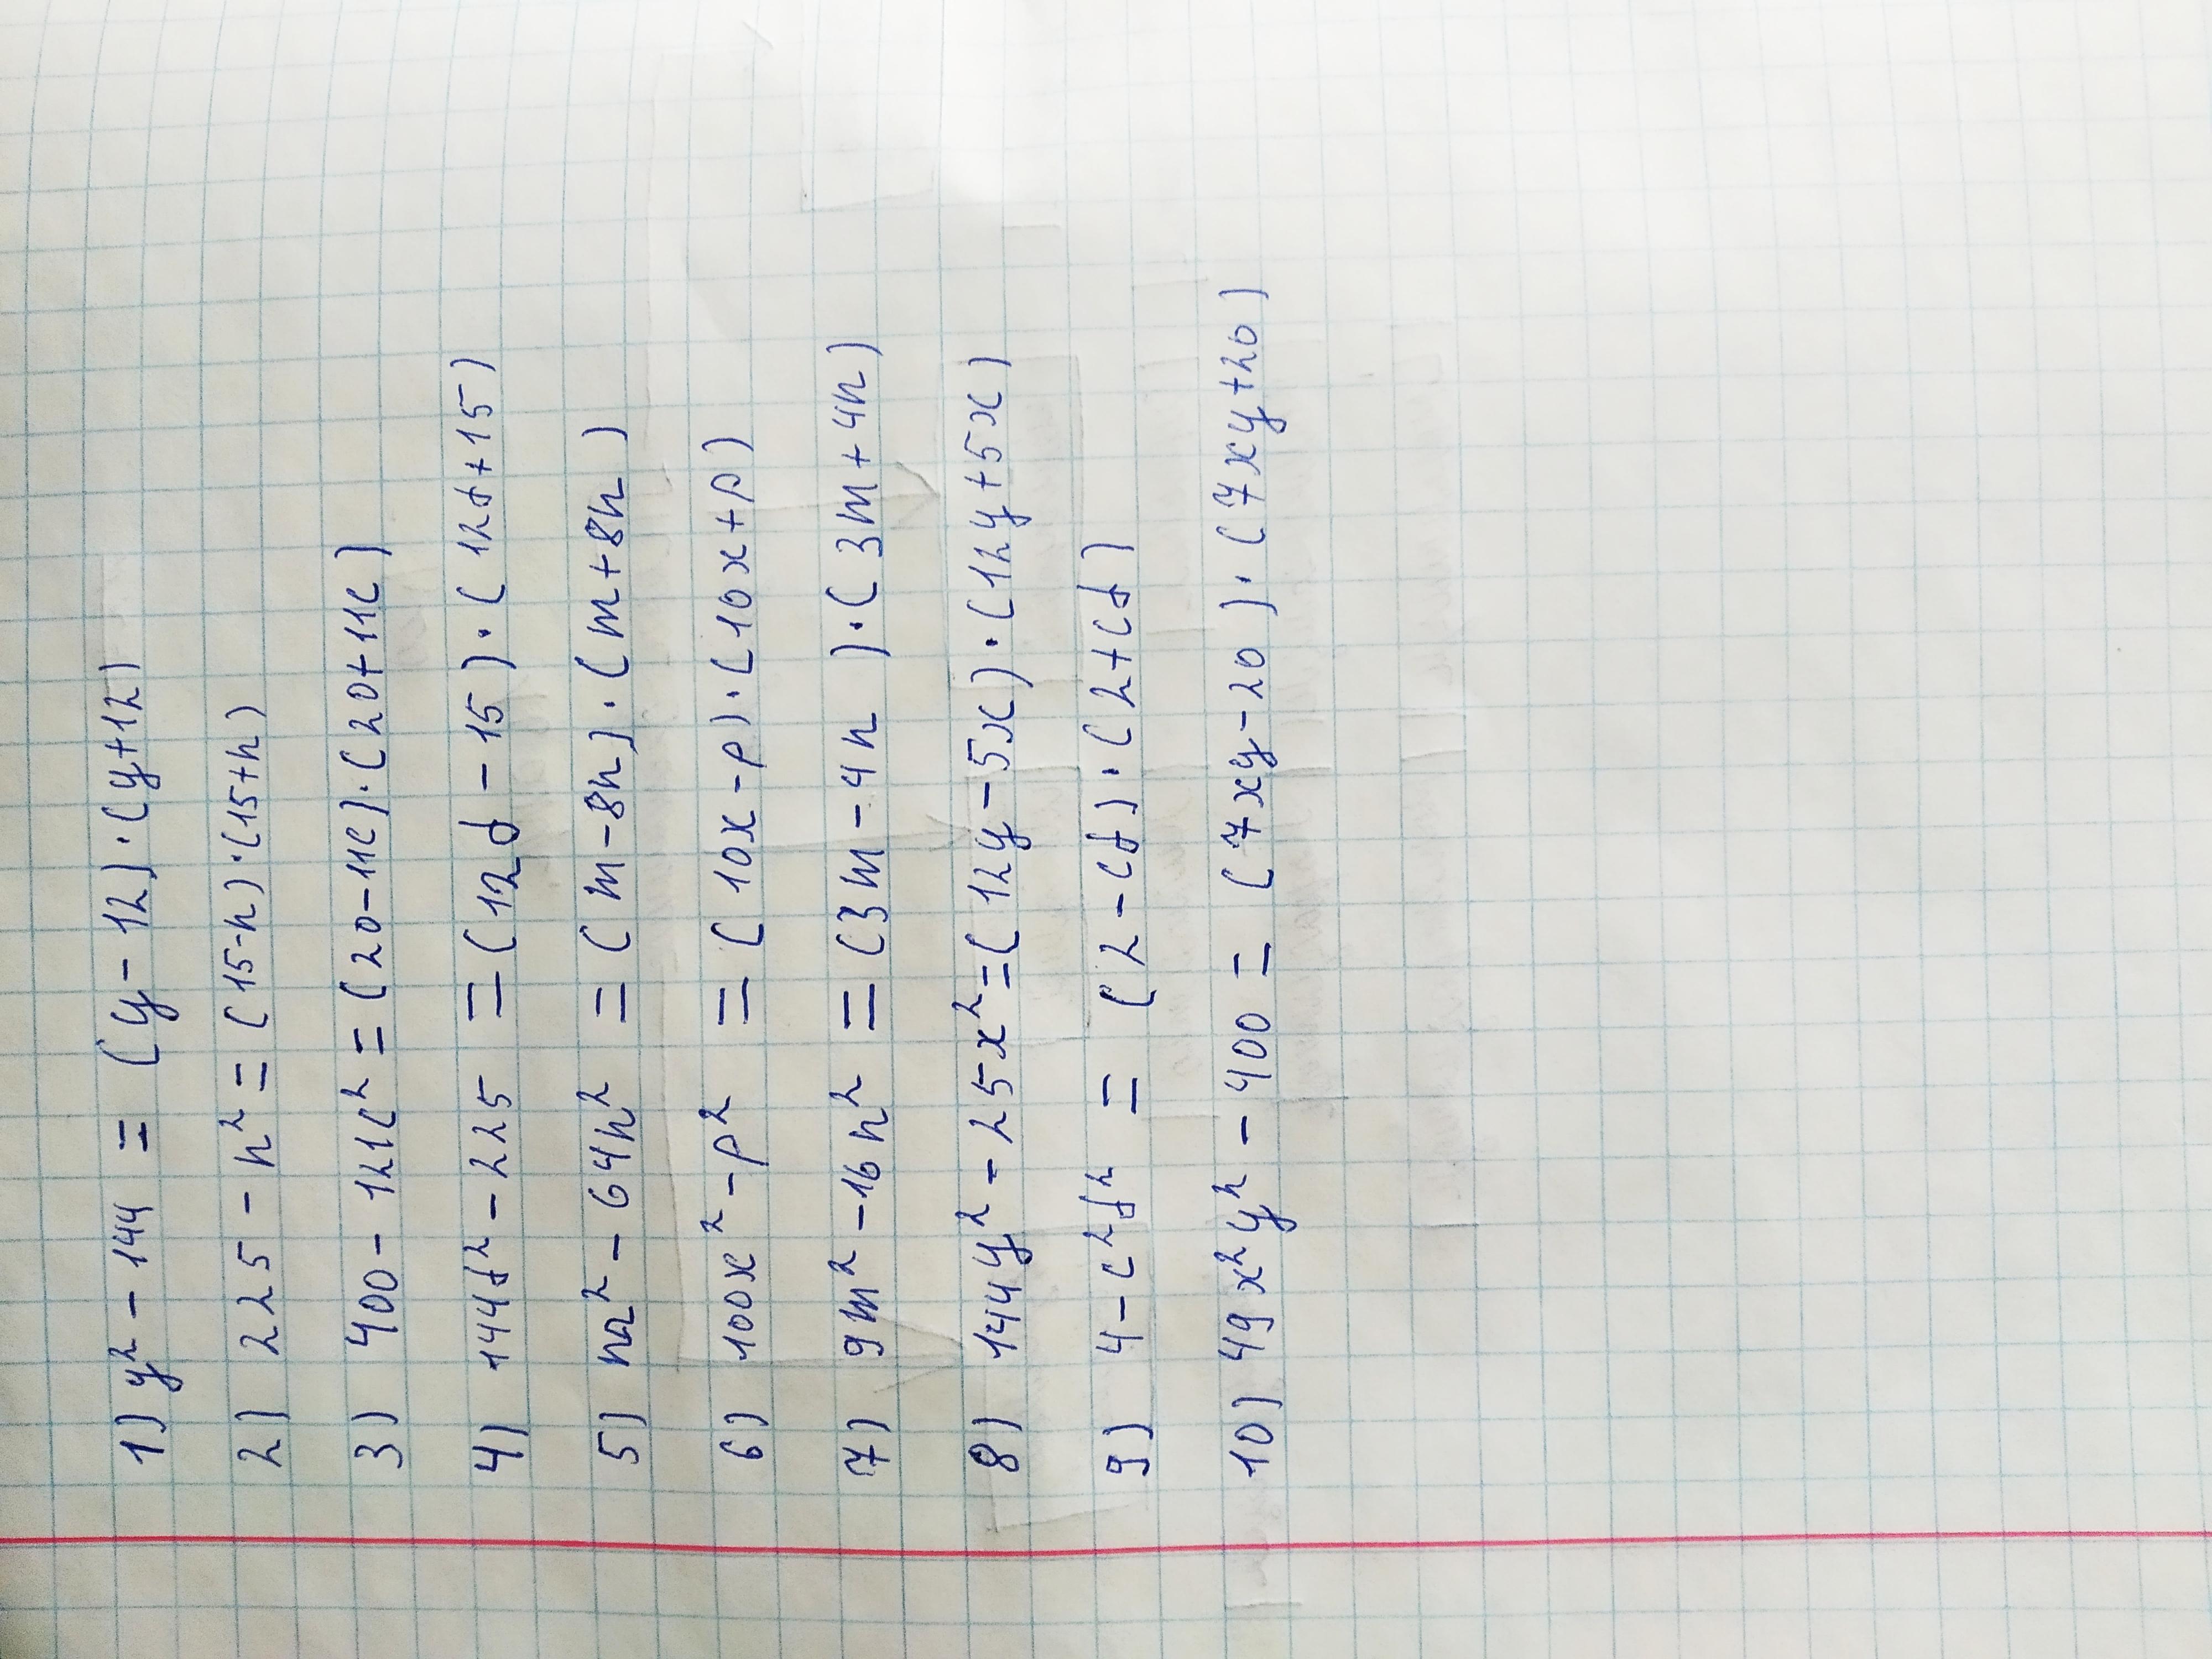 1) y² - 144 = (y - 12) · (y + 12)
2) 225 - n² = (15 - n) · (15 + n)
3) 400 - 121c² = (20 - 11c) · (20 + 11c)
4) 144d² - 225 = (12d - 15) · (12d + 15)
5) m² - 64n² = (m - 8n) · (m + 8n)
6) 100x² - p² = (10x - p) · (10x + p)
7) 9m² - 16n² = (3m - 4n) · (3m + 4n)
8) 144y² - 25x² = (12y - 5x) · (12y + 5x)
9) 4 - c²d² = (2 - cd) · (2 + cd)
10) 49x²y² - 400 = (7xy - 20) · (7xy + 20)